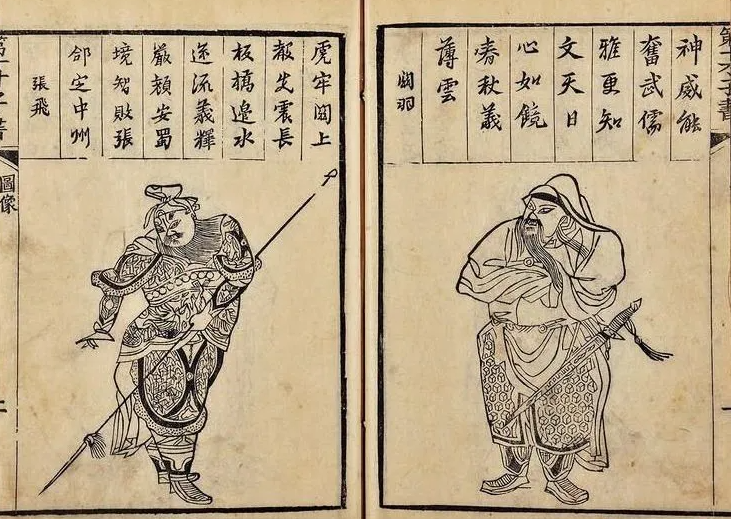 第一才子書
神威能
奮武儒
雅更知
文天日
心如鏡
春秋義
薄雲
関羽
一
虎牢関上
聲先震長
板橋邊水
逆流義釋
嚴顏安蜀
境智欺張
郃定中州
張飛
第一才子書
圖像
二